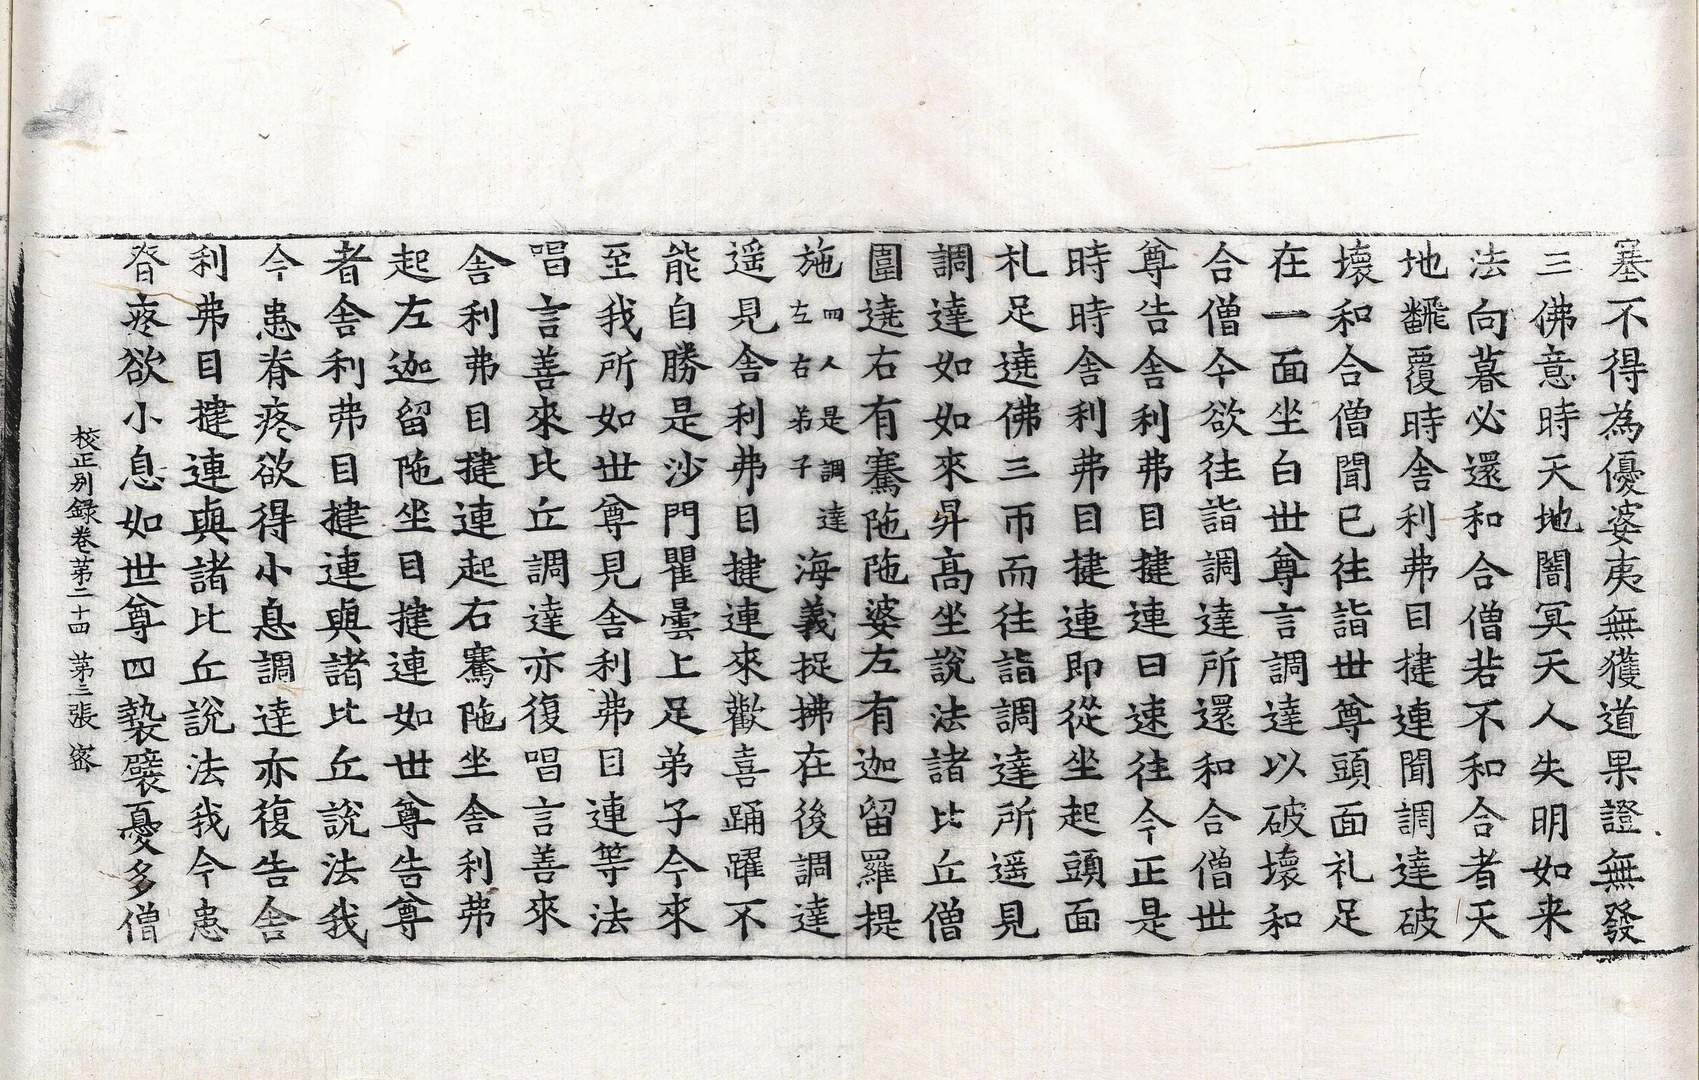 塞不得為優婆夷無獲道果證無發
三佛意時天地闇冥天人失明如来
法向暮必還和合僧若不和合者天
地飜覆時舍利弗目揵連聞調達破
壞和合僧聞已往詣世尊頭面礼足
在一面坐白世尊言調達以破壞和
合僧今欲往詣調達所還和合僧世
尊告舍利弗目揵連曰速往今正是
時時舍利弗目揵連即從坐起頭面
礼足遶佛三帀而往詣調達所遥見
調達如如來昇高坐說法諸比丘僧
圍遶右有騫陁陁婆左有迦留羅提
施四人是調達左右弟子海義捉拂在後調達
遥見舍利弗目揵連來歡喜踊躍不
能自勝是沙門瞿曇上足弟子今來
至我所如世尊見舍利弗目連等法
唱言善來比丘調達亦復唱言善來
舍利弗目揵連起右騫陁坐舍利弗
起左迦留陁坐目揵連如世尊告尊
者舍利弗目揵連與諸比丘說法我
今患脊疼欲得小息調達亦復告舍
利弗目揵連與諸比丘說法我今患
脊疼欲小息如世尊四褺襞憂多僧
校正別録卷第二十四 第三張 密